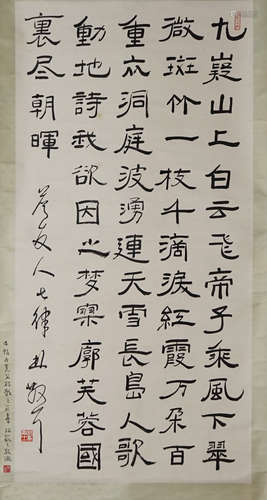 九嶷山上白云飞帝子乘風下翠
微斑竹一枝千滴淚紅霞万朵百
重衣洞庭波湧連天雪長島人歌
動地詩我欲因之梦寥廓芙蓉國
裏尽朝暉 答友人七律 林散耳